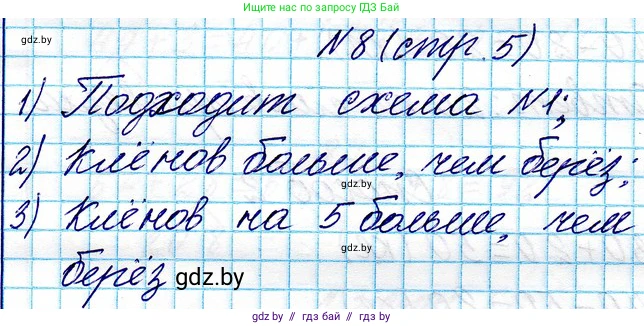 Найдено по запросу ГДЗ Бай
gdz.by
N8 (стр. 5)
1) Подходит схема N1;
2) Клёнов больше, чем берёз;
gdz.by
3) Клёнов на 5 больше, чем
gdz.by
берёз gdz.by
gdz.by // гдз.бай // gdz.by